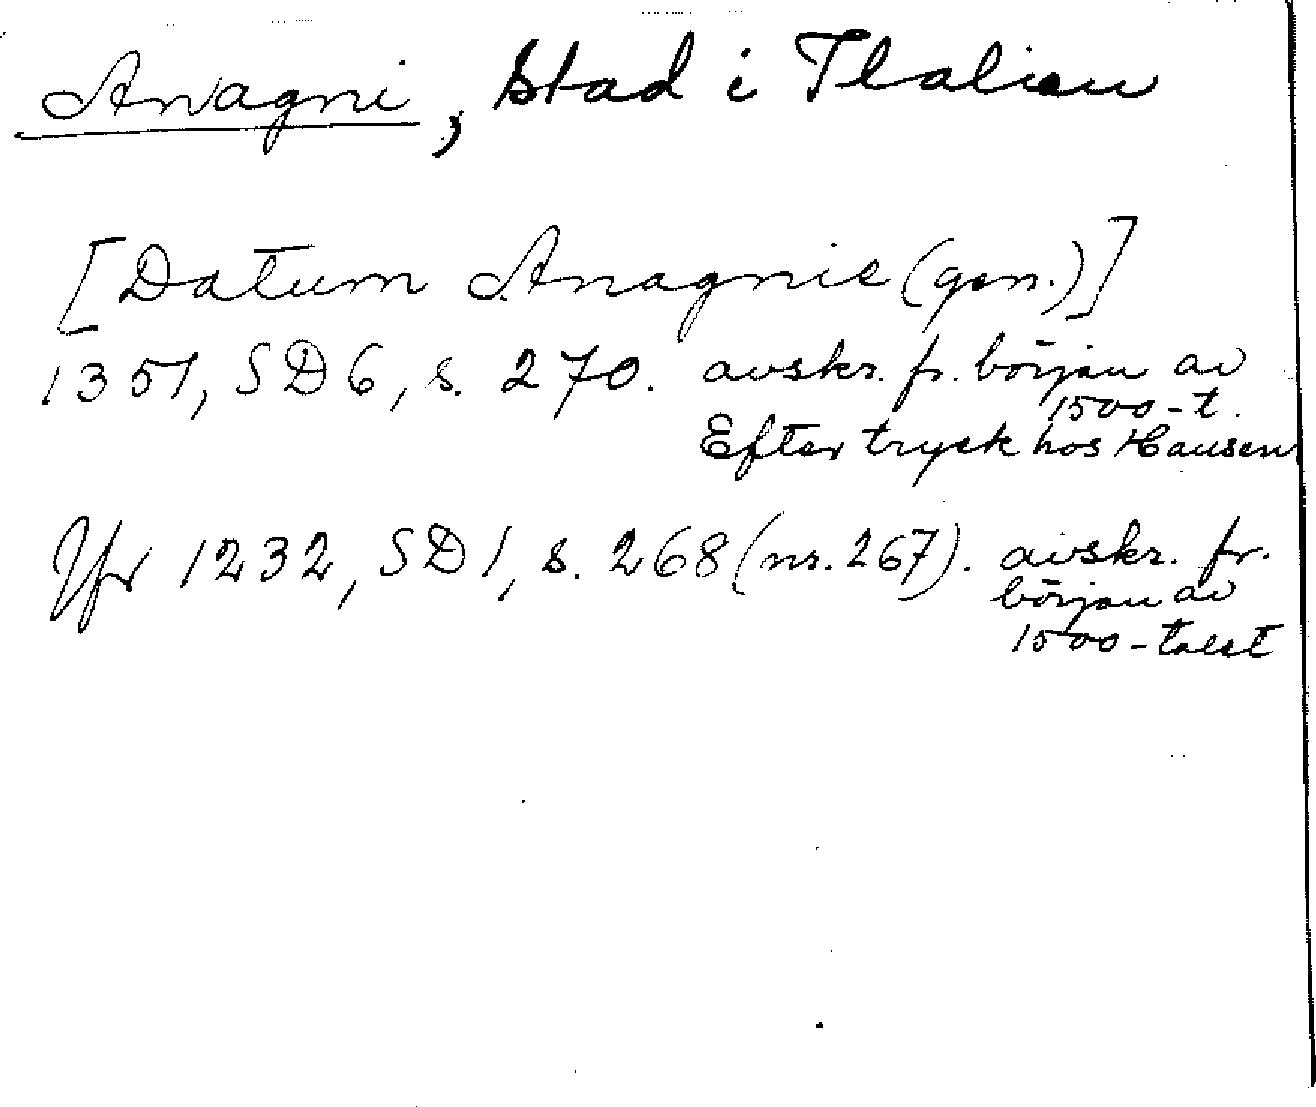 Anagni, stad i Italien
[Datum Anagnie (gen.)]
1351, SD 6, s. 270. avskr. fr. början av
1500-t.
Efter tryck hos Hausen
Jfr 1232, SD 1, s. 268 (nr. 267). avskr. fr.
början av
1500-talet